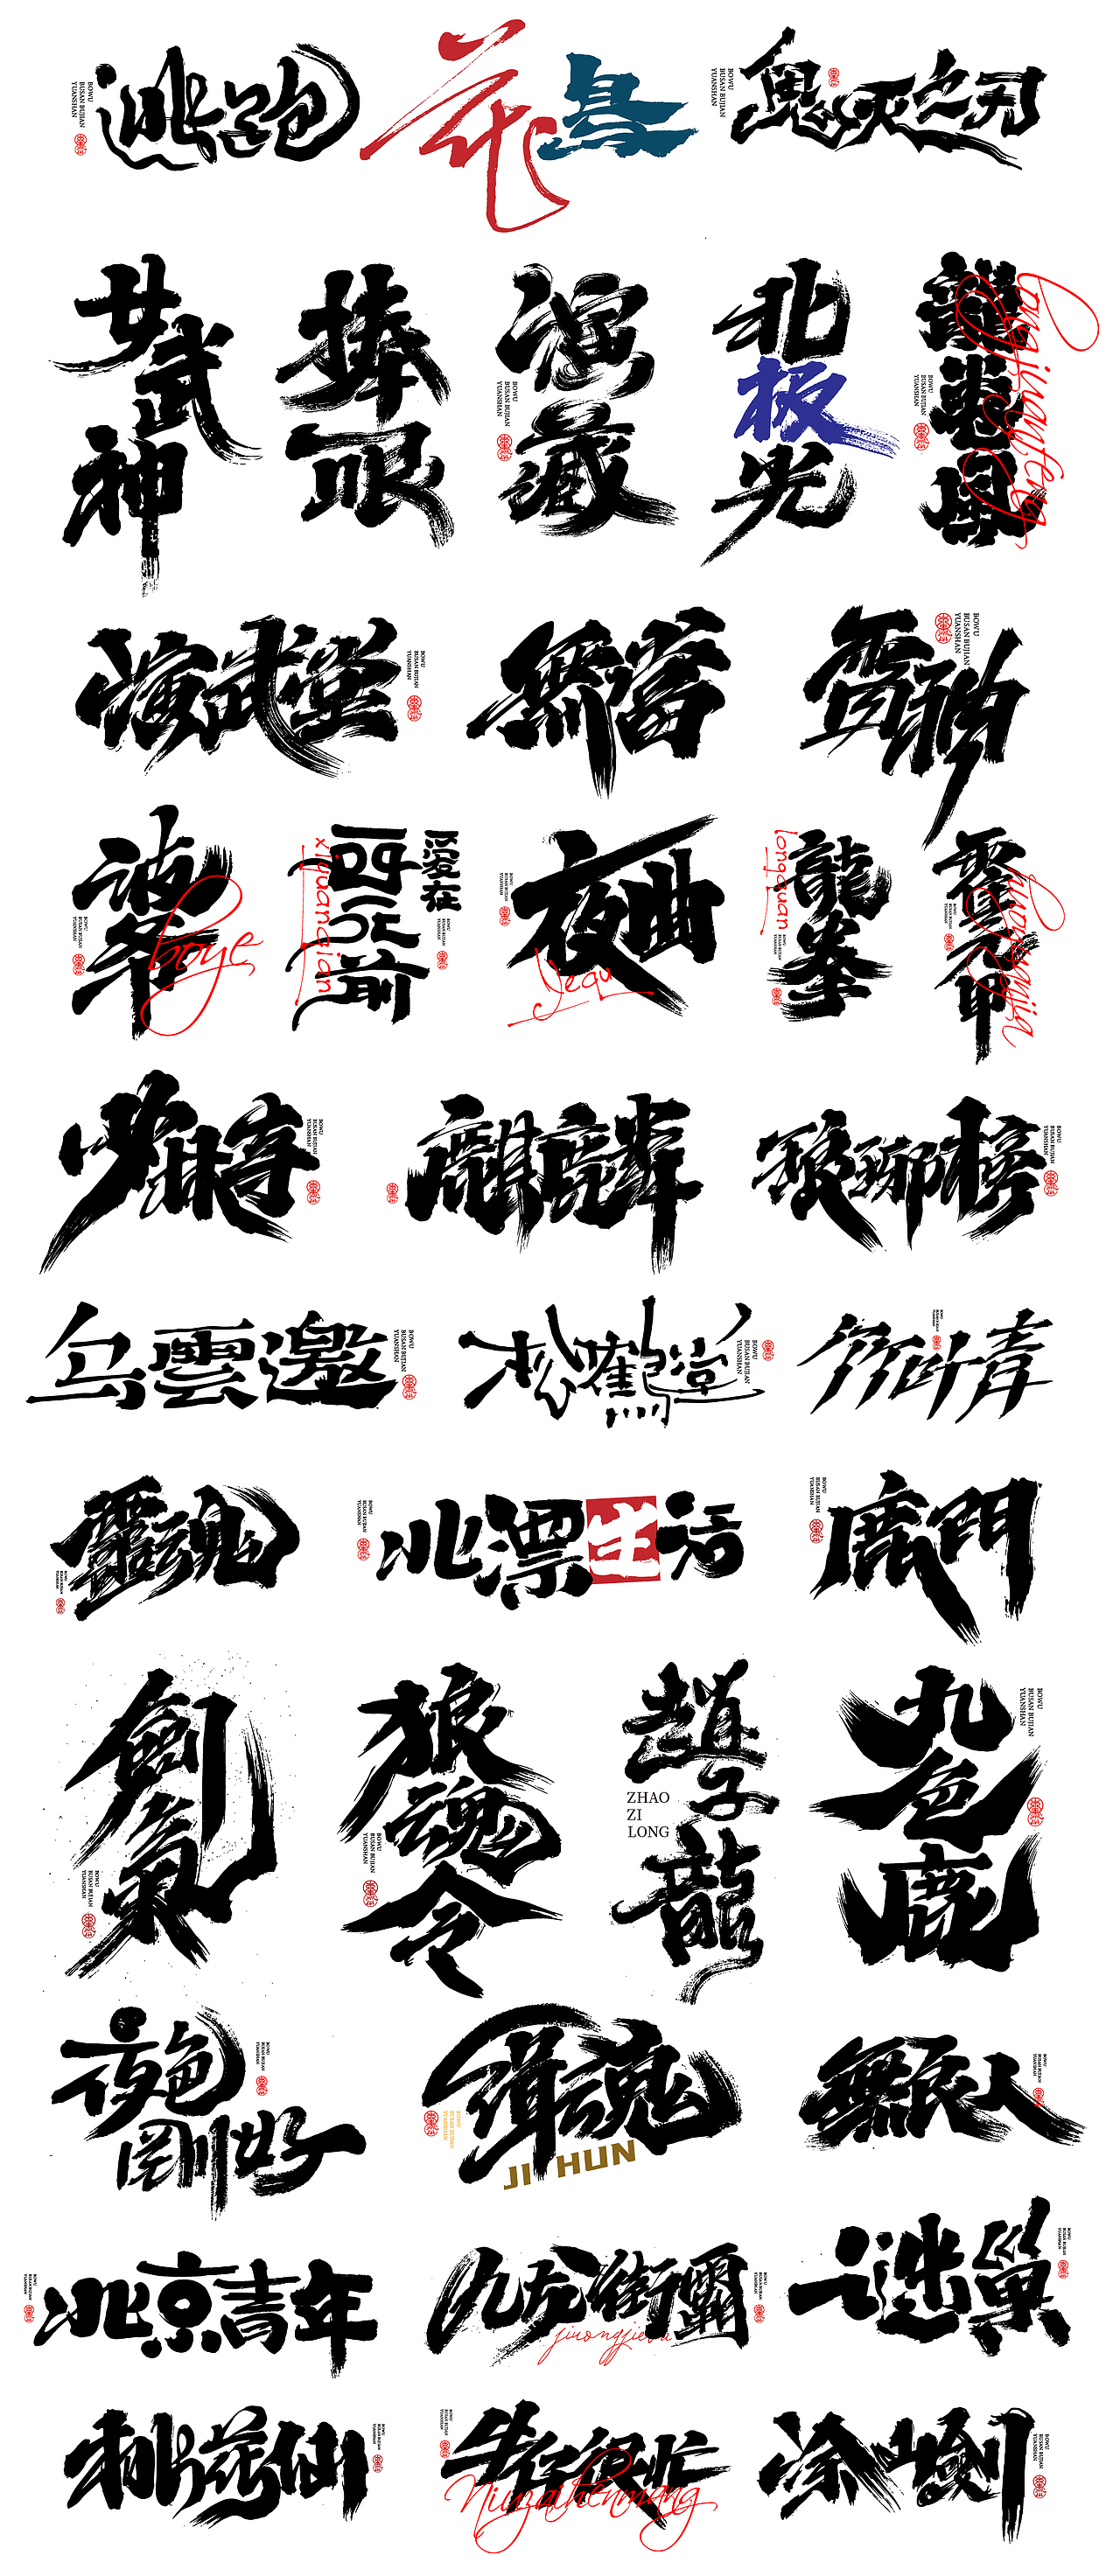 逃跑
BOWU
BUSAN BUJIAN
YUANSHAN
花鳥
鬼灭之刃
BOWU
BUSAN BUJIAN
YUANSHAN
女武神
捧眼
演藏
BOWU
BUSAN BUJIAN
YUANSHAN
北极光
龍卷風
longjuanfeng
BOWU
BUSAN BUJIAN
YUANSHAN
演武堂
BOWU
BUSAN BUJIAN
YUANSHAN
無當
賈詡
BOWU
BUSAN BUJIAN
YUANSHAN
波爷
boye
BOWU
BUSAN BUJIAN
YUANSHAN
爱在
西元前
xiyuanqian
BOWU
BUSAN BUJIAN
YUANSHAN
夜曲
Yequ
BOWU
BUSAN BUJIAN
YUANSHAN
龍拳
longquan
BOWU
BUSAN BUJIAN
YUANSHAN
霍元甲
huoyuanjia
BOWU
BUSAN BUJIAN
YUANSHAN
少時
BOWU
BUSAN BUJIAN
YUANSHAN
麒麟
琅琊榜
BOWU
BUSAN BUJIAN
YUANSHAN
乌雲邀
BOWU
BUSAN BUJIAN
YUANSHAN
松鶴堂
BOWU
BUSAN BUJIAN
YUANSHAN
竹叶青
靈魂
BOWU
BUSAN BUJIAN
YUANSHAN
北漂生活
BOWU
BUSAN BUJIAN
YUANSHAN
鹿門
BOWU
BUSAN BUJIAN
YUANSHAN
劍氣
BOWU
BUSAN BUJIAN
YUANSHAN
狼魂令
BOWU
BUSAN BUJIAN
YUANSHAN
趙子龍
ZHAO
ZI
LONG
九色鹿
BOWU
BUSAN BUJIAN
YUANSHAN
夜色
剛好
BOWU
BUSAN BUJIAN
YUANSHAN
缉魂
JI HUN
BOWU
BUSAN BUJIAN
YUANSHAN
無艮人
BOWU
BUSAN BUJIAN
YUANSHAN
北京青年
BOWU
BUSAN BUJIAN
YUANSHAN
九龙街霸
BOWU
BUSAN BUJIAN
YUANSHAN
谜巢
BOWU
BUSAN BUJIAN
YUANSHAN
桃花仙
BOWU
BUSAN BUJIAN
YUANSHAN
牛仔很忙
Niuzaihenmang
BOWU
BUSAN BUJIAN
YUANSHAN
BOWU
BUSAN BUJIAN
YUANSHAN